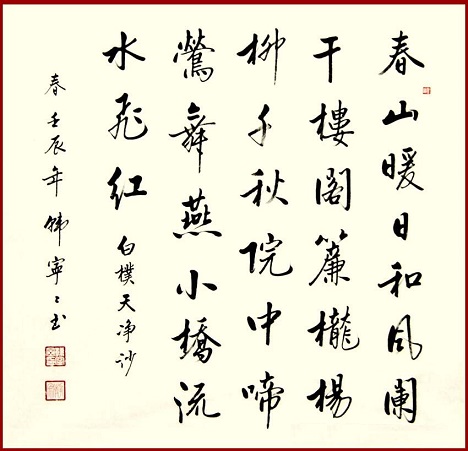 春山暖日和风阑
干樓閣簾櫳楊
柳千秋院中啼
鶯舞燕小橋流
水飛红
白樸天净沙
春壬辰年韩寧〻书